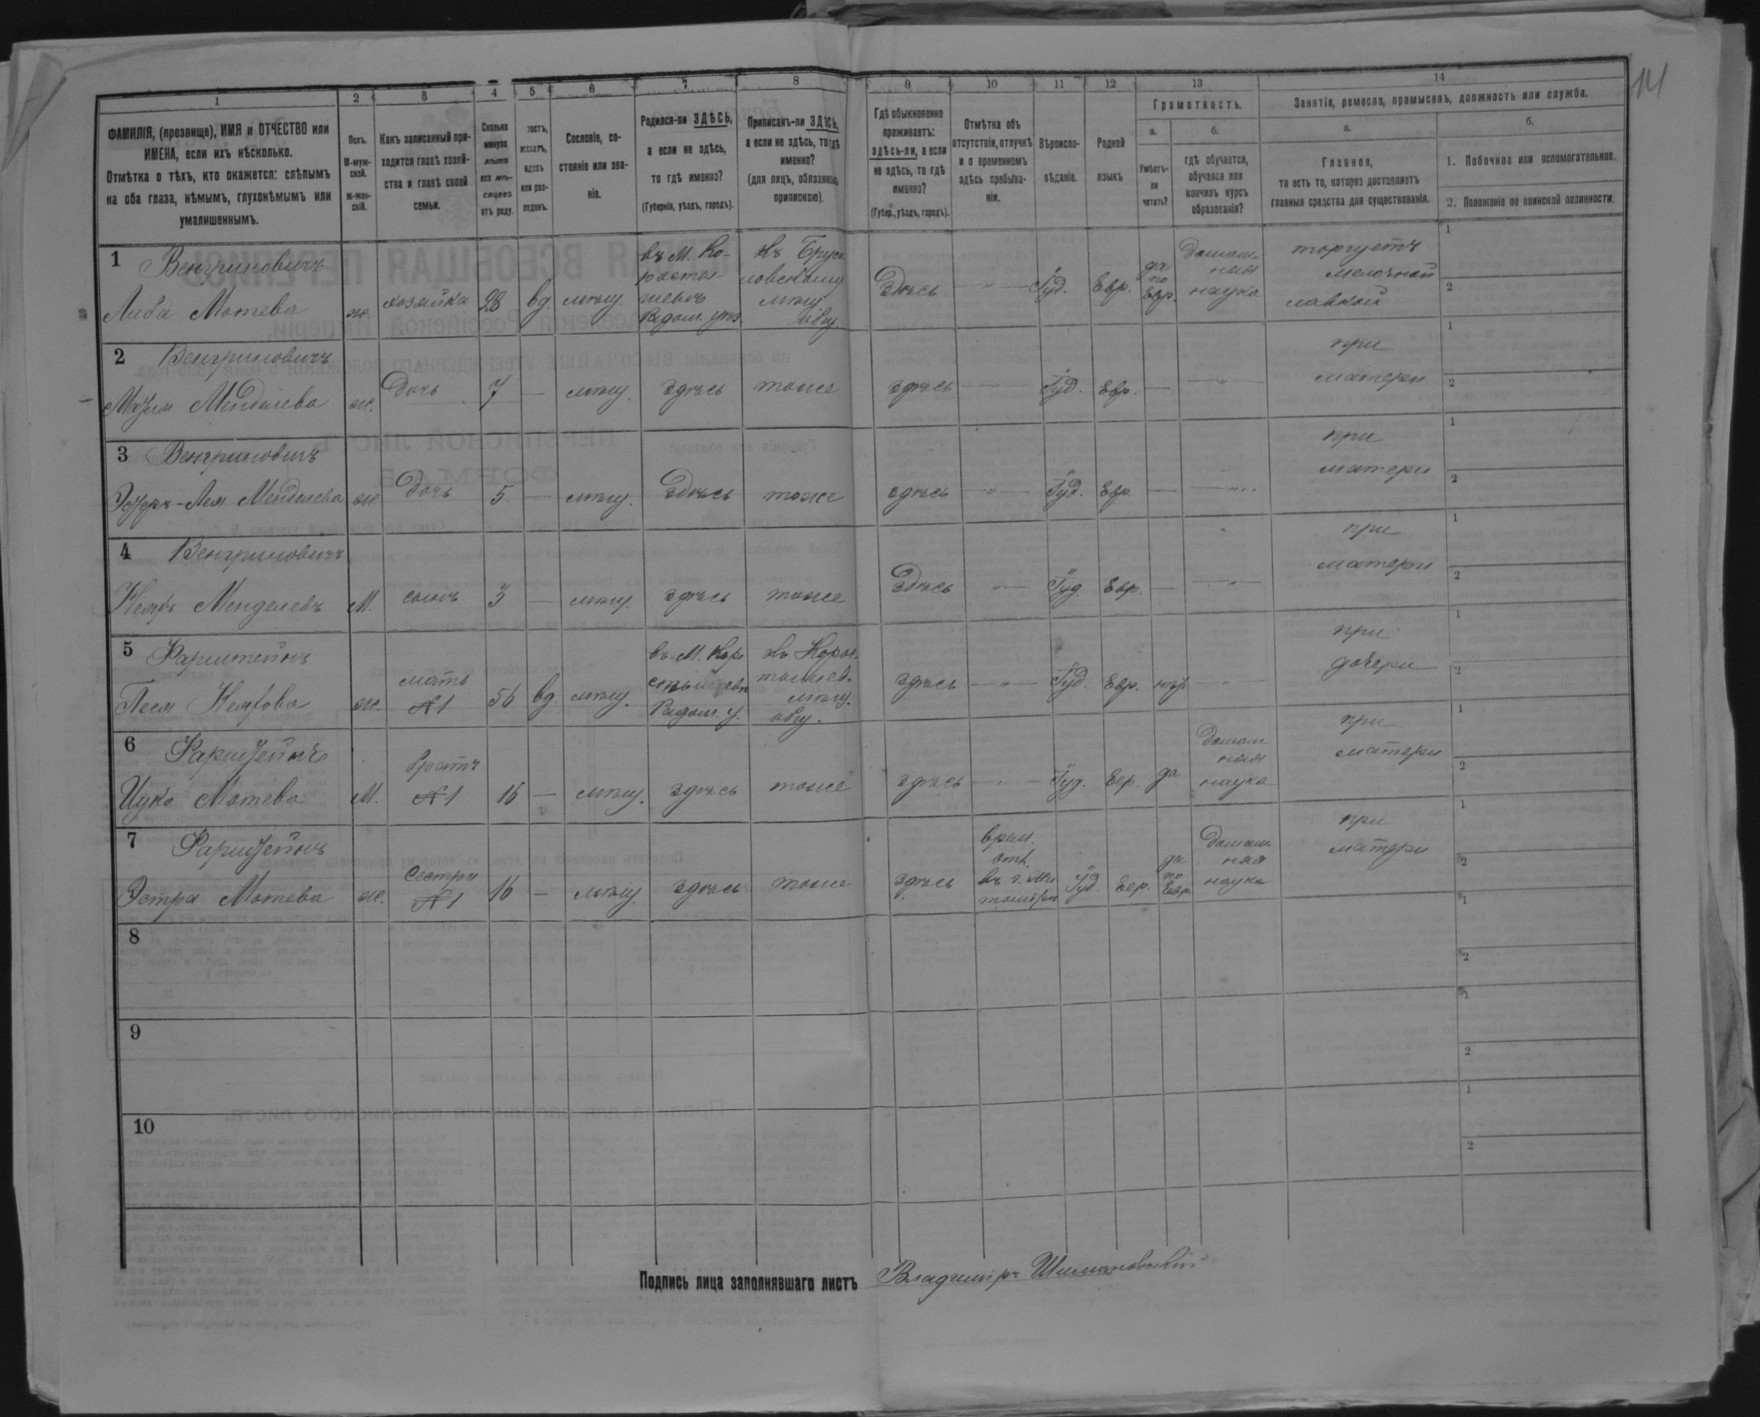 141
1
2
3
4
5
6
7
8
9
10
11
12
13
14
ФАМИЛІЯ, (прозвище), ИМЯ и ОТЧЕСТВО или
ИМЕНА, если ихъ нѣсколько.
Отмѣтка о тѣхъ, кто окажется: слѣпымъ
на оба глаза, нѣмымъ, глухонѣмымъ или
умалишеннымъ.
Полъ.
М-муж-
ской.
Ж-жен-
скій.
Какъ записанный при-
ходится главѣ хозяй-
ства и главѣ своей
семьи.
Сколько
минуло
лѣтъ
или мѣ-
сяцевъ
отъ роду.
Холостъ,
женатъ,
вдовъ
или раз-
веденъ.
Сословіе, со-
стояніе или зва-
ніе.
Родился-ли ЗДѢСЬ,
а если не здѣсь,
то гдѣ именно?
(Губернія, уѣздъ, городъ).
Приписанъ-ли ЗДѢСЬ,
а если не здѣсь, то гдѣ
именно?
(для лицъ, обязанныхъ
припискою).
Гдѣ обыкновенно
проживаетъ:
здѣсь-ли, а если
не здѣсь, то гдѣ
именно?
(Губер., уѣздъ, городъ).
Отмѣтка объ
отсутствіи, отлучкѣ
и о временномъ
здѣсь пребыва-
ніи.
Вѣроиспо-
вѣданіе.
Родной
языкъ
Грамотность.
а.
Умѣетъ-
ли
читать?
б.
гдѣ обучается,
обучался или
кончилъ курсъ
образованія?
Занятіе, ремесло, промыселъ, должность или служба.
а.
Главное,
то есть то, которое доставляетъ
главныя средства для существованія.
б.
1. Побочное или вспомогательное.
2. Положеніе по воинской повинности.
1 Венгриновичъ
Либа Мотева ж. хозяйка 28 вд мѣщ. въ М. Ко-
ростышевъ
Радом. уѣз. къ Брусиловскому
мѣщ.
общ. Здѣсь Іуд. Евр. да
по
Евр. домаш-
няя
наука торгуетъ
мелочной
лавкой
2 Венгриновичъ
Менделева ж. дочь 7 — мѣщ. здѣсь тоже здѣсь Іуд. Евр. — при
матери
3 Венгриновичъ
Лея Менделева ж. дочь 5 — мѣщ. здѣсь тоже здѣсь Іуд. Евр. — при
матери
4 Венгриновичъ
Менделевъ М. сынъ 3 — мѣщ. здѣсь тоже Здѣсь Іуд. Евр. — при
матери
5 Фарштейнъ
Песя ж. мать
№ 1 56 вд мѣщ. въ М. Коро
Радом. у. къ Корос.
мѣщ.
общ. здѣсь Іуд. Евр. при
дочери
6 Фарштейнъ
Ицко Мотева М. братъ
№ 1 16 — мѣщ. здѣсь тоже здѣсь Іуд. Евр. да домаш
няя
наука при
матери
7 Фарштейнъ
Эстра Мотева ж. сестра
№ 1 16 — мѣщ. здѣсь тоже здѣсь врем.
отл.
въ г. Жи
томірѣ Іуд. Евр. да
по
Евр. домаш
няя
наука при
матери
8
9
10
Подпись лица заполнявшаго листъ Владиміръ Шимановскій